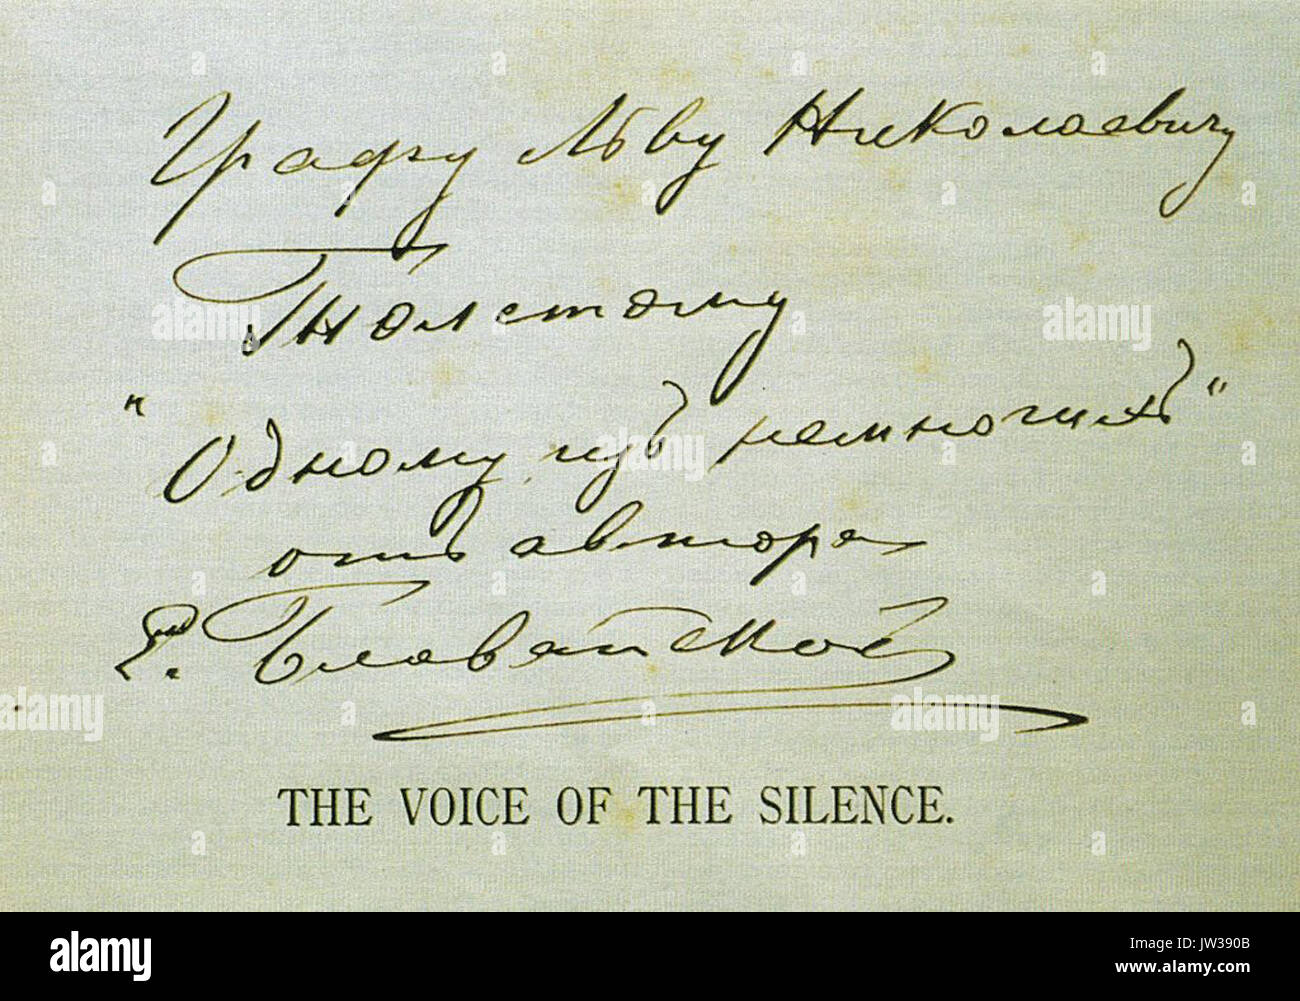 Графу Льву Николаевичу
Толстому
"Одному изъ немногихъ"
отъ автора
Е. Блаватской
THE VOICE OF THE SILENCE.
alamy stock photo
JW390B
www.alamy.com